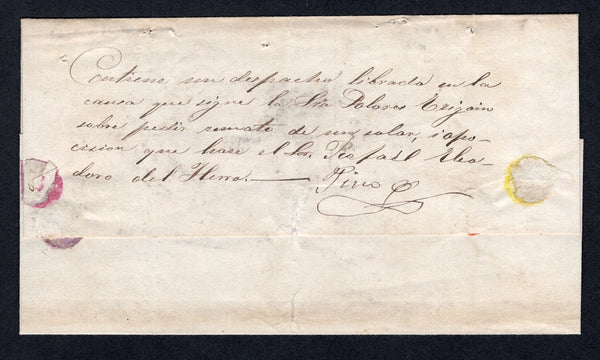 Contiene un despacho librado en la
causa que sigue la Sra Dolores Irigoin
sobre pedir remate de un solar, i opo-
cision que hace el Sor Rafael Alea-
doro del Hierro.
Pino